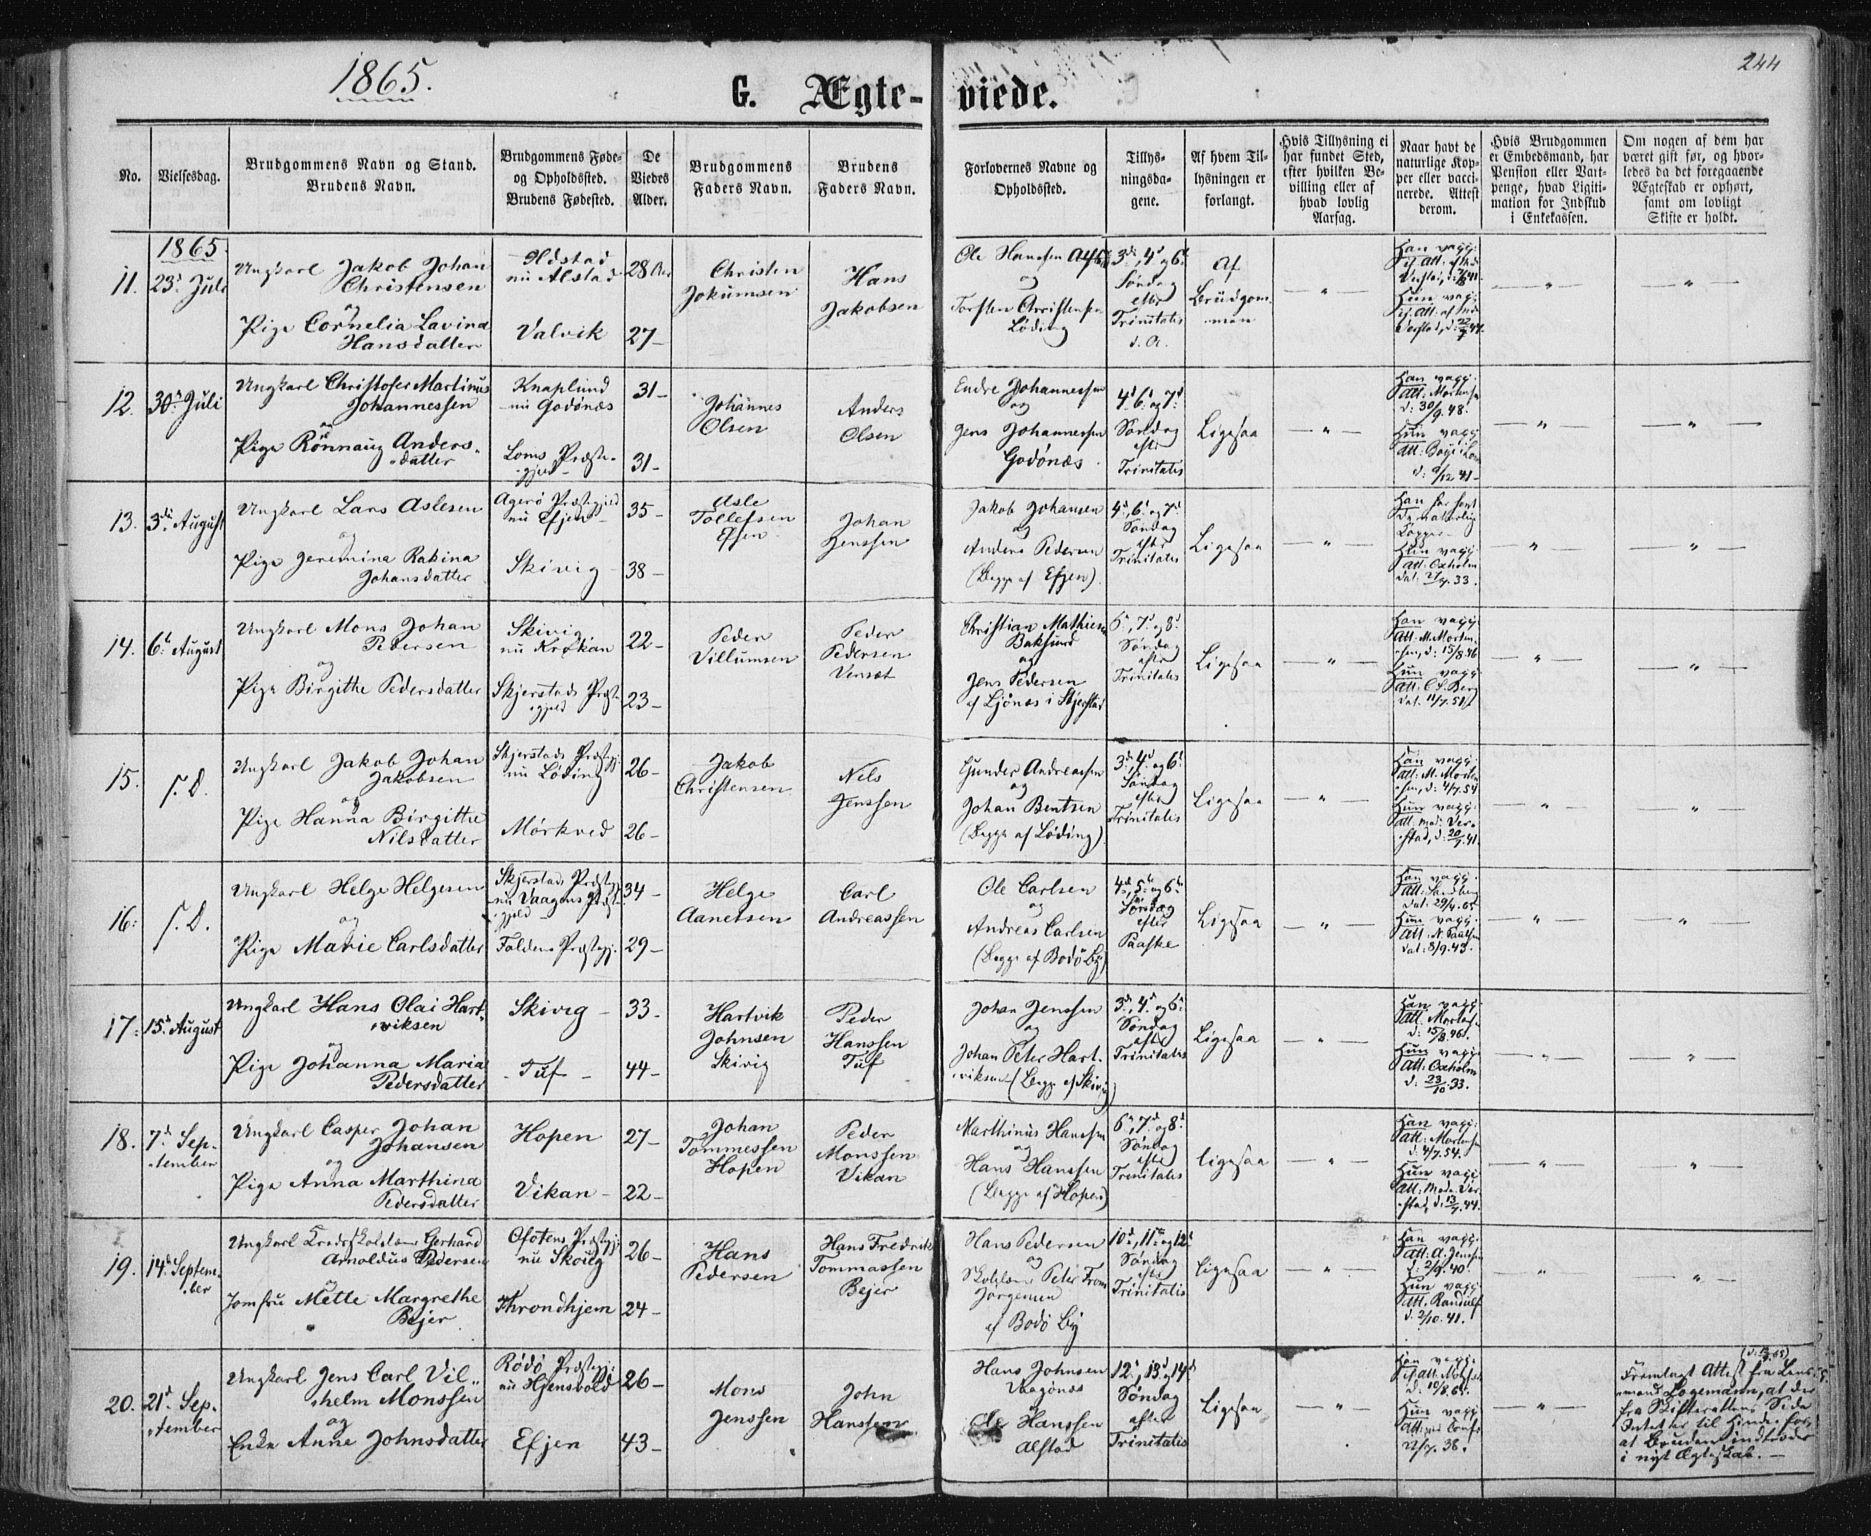 1865.
244
G. Ægte-viede.
No.
Vielsesdag.
Brudgommens Navn og Stand.
Brudens Navn.
Brudgommens Føde-
og Opholdssted.
Brudens Fødested.
De
Viedes
Alder.
Brudgommens
Faders Navn.
Brudens
Faders Navn.
Forlovernes Navne og
Opholdssted.
Tillys-
ningsda-
gene.
Af hvem Til-
lysningen er
forlangt.
Hvis Tillysning ei
har fundet Sted,
efter hvilken Be-
villing eller af
hvad lovlig
Aarsag.
Naar havt de
naturlige Kop-
per eller vacci-
nerede. Attest
derom.
Hvis Brudgommen
er Embedsmand, har
Pension eller Vart-
penge, hvad Ligiti-
mation for Indskud
i Enkekassen.
Om nogen af dem har
været gift før, og hvor-
ledes da det foregaaende
Ægteskab er ophørt,
samt om lovligt
Skifte er holdt.
1865
11.
23d Juli
Ungkarl Jakob Johan
Christensen
og
Pige Cornelia Lavina
Hansdatter
nu Alstad
Valvik
28 Aar
27-
Christen
Jokumsen
Hans
Jakobsen
Ole Hanssen
og
Torsten Christensen
Løding
3die, 4de og 6te
Søndag
efter
Trinitatis
d. A.
Af
Brudgom-
men
12.
30te Juli
Ungkarl Christofer Martinus
Johannessen
og
Pige Rønnaug Anders-
datter
Knaplund
nu Godønæs
Loms Præste-
gjeld
31-
31-
Johannes
Olsen
Anders
Olsen
Endre Johannessen
og
Jens Johannessen
Godønæs
4de, 6te og 7de
Søndag
efter
Trinitatis
Ligesaa
Han vacc.
att: Mortensen
d: 30/9.48.
Hun vacc.
13.
3die August
Ungkarl Lars Aslesen
og
Pige Jeremina Rakina
Johansdatter
Agerø Præstegjeld
nu Efjen
Skivig
35-
38-
Asle
Tollefsen
Efjen
Johan
Jenssen
Jakob Johansen
og
Anders Pedersen
(Begge af Efjen).
4de, 6te og 7de
Søndag
efter
Trinitatis
Ligesaa
Hun vacc.
att: Oxholm
14.
6te August
Ungkarl Mons Johan
Pedersen
og
Pige Birgithe Pedersdatter
Skivig
nu Krøkan
Skjerstads Præst-
egjeld
22-
23-
Peder
Villumsen
Peder
Pedersen
Venset
Christian Mathiesen
Baksund
og
Jens Pedersen
af Ljønæs i Skjerstad
6te, 7de og 8de
Søndag
efter
Trinitatis
Ligesaa
Han vacc.
att: M. Morten-
sen, d: 15/8.46
Hun vacc.
15.
S. D.
Ungkarl Jakob Johan
Jakobsen
og
Pige Hanna Birgitthe
Nilsdatter
Skjerstads Præstegj:
nu Løding
Mørkved
26-
26-
Jakob
Christensen
Nils
Jenssen
Gunder Andreassen
og
Johan Bentsen
(Begge af Løding)
3die, 4de og 6te
Søndag
efter
Trinitatis
Ligesaa
Han vacc.
att: M. Morten-
sen, d: 4/7.54
Hun vacc.
att: Mad: Ver-
stad, d: 20/7.41.
16.
S. D.
Ungkarl Helge Helgesen
og
Pige Marie Carlsdatter
Skjerstads Præstegj
nu Vaagens Præst-
gjeld
Foldens Præstegj.
34-
29-
Helge
Aanetsen
Carl
Andreassen
Ole Carlsen
og
Andreas Carlsen
(Begge af Bodø By)
4de, 5te og 6te
Søndag
efter
Paaske
Ligesaa
Han vacc.
Hun vacc.
17.
15de August
Ungkarl Hans Olai Hart-
viksen
og
Pige Johanna Maria
Pedersdatter
Skivig
Tuf
33-
44-
Hartvik
Johnsen
Skivig
Peder
Hanssen
Tuf
Johan Jenssen
og
Johan Peter Hart-
viksen (Begge af Skivig)
3die, 4de og 6te
Søndag
efter
Trinitatis
Ligesaa
Hun vacc.
att: Oxholm
d: 23/10.33.
18.
7de Sep-
tember
Ungkarl Casper Johan
Johansen
og
Pige Anna Marthina
Pedersdatter
Hopen
Vikan
27-
22-
Johan
Tommessen
Hopen
Peder
Monssen
Vikan
Marthinus Hanssen
og
Hans Hanssen
(Begge af Hopen)
6te, 7de og 8de
Søndag
efter
Trinitatis
Ligesaa
Han vacc.
att: Mortensen
d: 4/7.54.
Hun vacc.
19.
14de Septem-
ber
Ungkarl Gerhard
Arnoldus Pedersen
og
Jomfru Mette Margrethe
Bejer
Ofotens Præstegj:
nu Skoug
Throndhjem
26-
24-
Hans
Pedersen
Hans Fredrik
Tommassen
Bejer
Hans Pedersen
og
Peter
Jørgensen
af Bodø By
10de, 11te og 12te
Søndag
efter
Trinitatis
Ligesaa
Han vacc.
att. A. Jenssen
d: 2/9.40.
Hun vacc.
att. Randulf
d. 2/10.41.
20.
21de Sep-
tember
Ungkarl Jens Carl Vil-
helm Monssen
og
Enke Anne Johnsdatter
Rødø Præstegj:
nu Hjensvold
Efjen
26-
43-
Mons
Jenssen
John
Hanssen
Hans Johnsen
Vaagønæs
og
Ole Hanssen
Alstad
12te, 13de og 14de
Søndag
efter
Trinitatis
Ligesaa
Han vacc.
Hun vacc.
Fremlagt Attest fra Lens-
mand Logemann, at der
fra Skifterettens Side
Intet er til Hinder for,
at Bruden indtræder
i nyt Ægteskab.